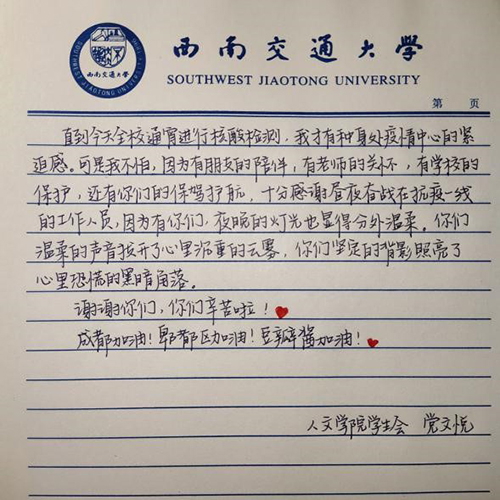 西南交通大学
SOUTHWEST JIAOTONG UNIVERSITY
第 页
直到今天全校通宵进行核酸检测，我才有种身处疫情中心的紧
迫感。可是我不怕，因为有朋友的陪伴，有老师的关怀，有学校的
保护，还有你们的保驾护航，十分感谢昼夜奋战在抗疫一线
的工作人员，因为有你们，夜晚的灯光也显得分外温柔。你们
温柔的声音拨开了心里沉重的云雾，你们坚定的背影照亮了
心里恐慌的黑暗角落。
谢谢你们，你们辛苦啦！
成都加油！郫都区加油！豆瓣酱加油！
人文学院学生会 党文悦